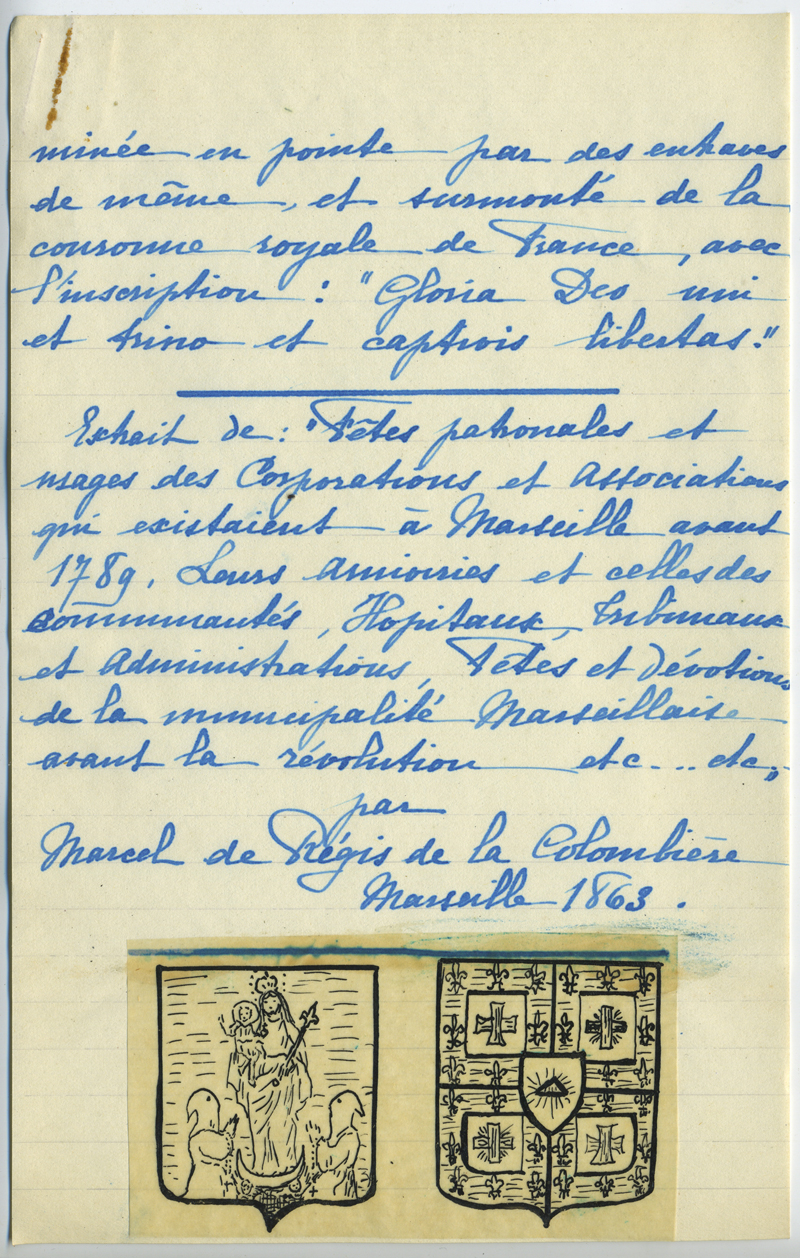 minée en pointe par des entraves
de même, et surmonté de la
couronne royale de France, avec
l'inscription : "Gloria Deo uni
et trino et captivis libertas."
Extrait de : "Fêtes patronales et
usages des Corporations et Associations
qui existaient à Marseille avant
1789, Leurs armoiries et celles des
communautés, Hopitaux, Tribunaux
et Administrations, Fêtes et Dévotions
de la municipalité Marseillaise
avant la révolution etc... etc,,
par
Marcel de Régis de la Colombière
Marseille 1863.